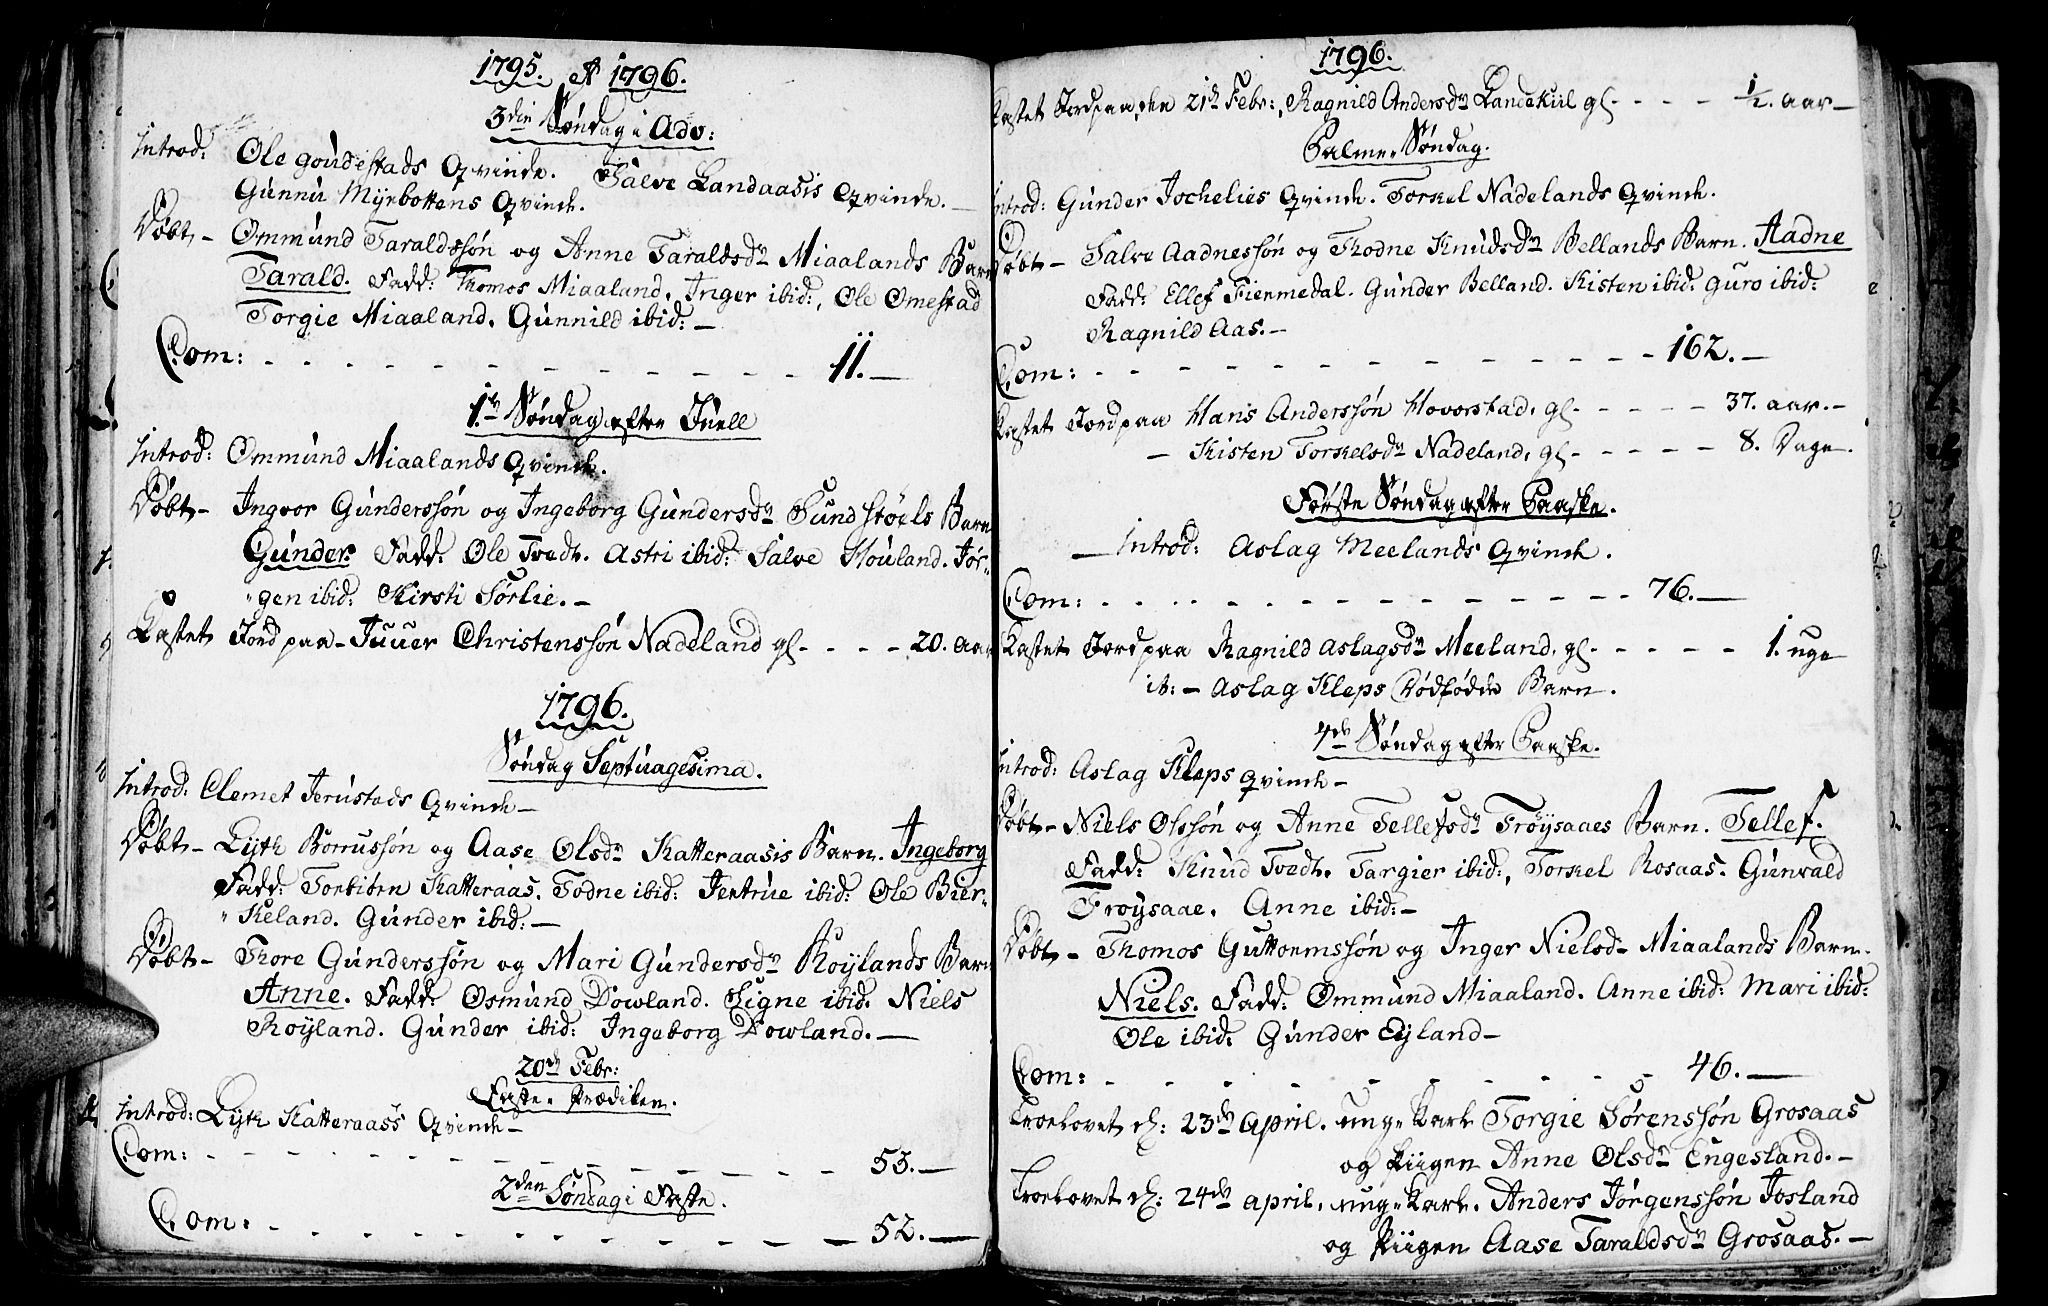 1795. & 1796.
3die Søndag i Adv:
Introd: Ole goudestads Qvinde. Salve Landaasis Qvinde.
Gunnu Myrbottens Qvinde.
Døbt – Ommund Taraldssøn og Anne Taraldsdr Miaalands Barn
Tarald. Fadd: Thomos Miaaland. Inger ibid:, Ole Omestad
Torgie Miaaland. Gunnild ibid: –
Com: - - - - - - - - - - - - 11. –
1ste Søndag efter Juell
Introd: Ommund Miaalands Qvinde.
Døbt – Ingvor Gunderssøn og Ingeborg Gundersdr Sundstøels Barn
Gunder. Fadd: Ole Tvedt. Astri ibid: Salve Houland. Jør-
"gen ibid: Kirsti Sørlie. –
Kastet Jord paa – Juuer Christenssøn Nadeland gl - - - - 20. aar
1796.
Søndag Septuagesima.
Introd: Clemet Jerustads Qvinde –
Døbt – Lyth Borrussøn og Aase Olsdr Katteraasis Barn. Ingeborg
Fadd: Torbiørn Katteraas. Todne ibid: Jertrue ibid: Ole Bier-
"Keland. Gunder ibid: –
Døbt – Thore Gunderssøn og Mari Gundersdr Røylands Barn
Anne. Fadd: Osmund Dowland. Signe ibid: Niels
Røyland. Gunder ibid: Ingeborg Dowland. –
20de Febr:
Faste-Prædiken.
Introd: Lyth Katteraass Qvinde –
Com: - - - - - - - - - - - - 53. –
2den Søndag i Faste.
Com: - - - - - - - - - - - - 52. –
1796.
Kastet Jord paa, den 21de Febr:, Ragnild Andersdr Landekiil gl - - - - ½. aar –
Palme-Søndag.
Introd: Gunder Jochelies Qvinde. Torkel Nadelands Qvinde.
Døbt – Salve Aadnessøn og Thodne Knudsdr Bellands Barn. Aadne
Fadd: Ellef Fienmedal. Gunder Belland. Kisten ibid: guro ibid:
Ragnild Aas. –
Com: - - - - - - - - - - - - 162. –
Kastet Jord paa Hans Anderssøn Hovorstad, gl - - - - - 37. aar. –
– Kisten Torkelsdr Nadeland, gl - - - - - 8. Dage.
Første Søndag efter Paaske.
– Introd: Aslag Meelands Qvinde.
Com: - - - - - - - - - - - - 76. –
Kastet Jord paa Ragnild Aslagsdr Meeland, gl - - - - - 1. uge
it: – Aslag Kleps Dødfødde Barn.
4de Søndag efter Paaske.
Introd: Aslag Kleps Qvinde –
Døbt – Niels Olssøn og Anne Tellefsdr Frøysaaes Barn. Tellef.
Fadd: Knud Tvedt. Targier ibid:, Torkel Rosaas. Gunvald
Frøysaae. Anne ibid: –
Døbt – Thomos Guttormssøn og Inger Nielsd– Miaalands Barn.
Niels. Fadd: Ommund Miaaland. Anne ibid: Mari ibid:
Ole ibid: Gunder Eyland –
Com: - - - - - - - - - - - - 46. –
Troelovet d: 23de April. unge Karl Torgie Sørenssøn Grosaas
og Piigen Anne Olsdr Engesland. –
Troelovet d: 24de april, unge Karl. Anders Jørgenssøn Josland
og Piigen Aase Taraldsdr Grosaas. –